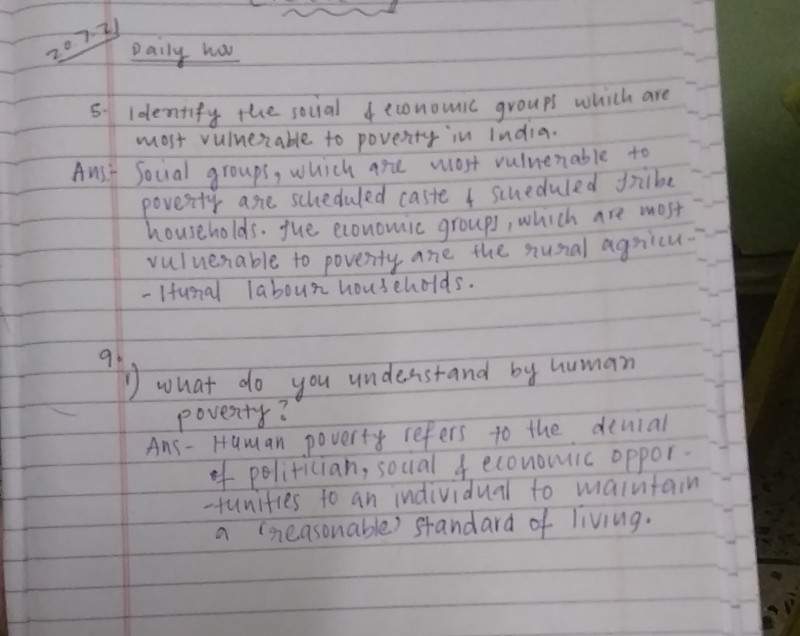 20.7.21
Daily hw
5. Identify the social & economic groups which are
most vulnerable to poverty in India.
Ans:- Social groups, which are most vulnerable to
poverty are scheduled caste & scheduled tribe
households. The economic groups, which are most
vulnerable to poverty are the rural agricu-
-ltural labour households.
9.
i) what do you understand by human
poverty?
Ans- Human poverty refers to the denial
of politician, social & economic oppor-
-tunities to an individual to maintain
a 'reasonable' standard of living.